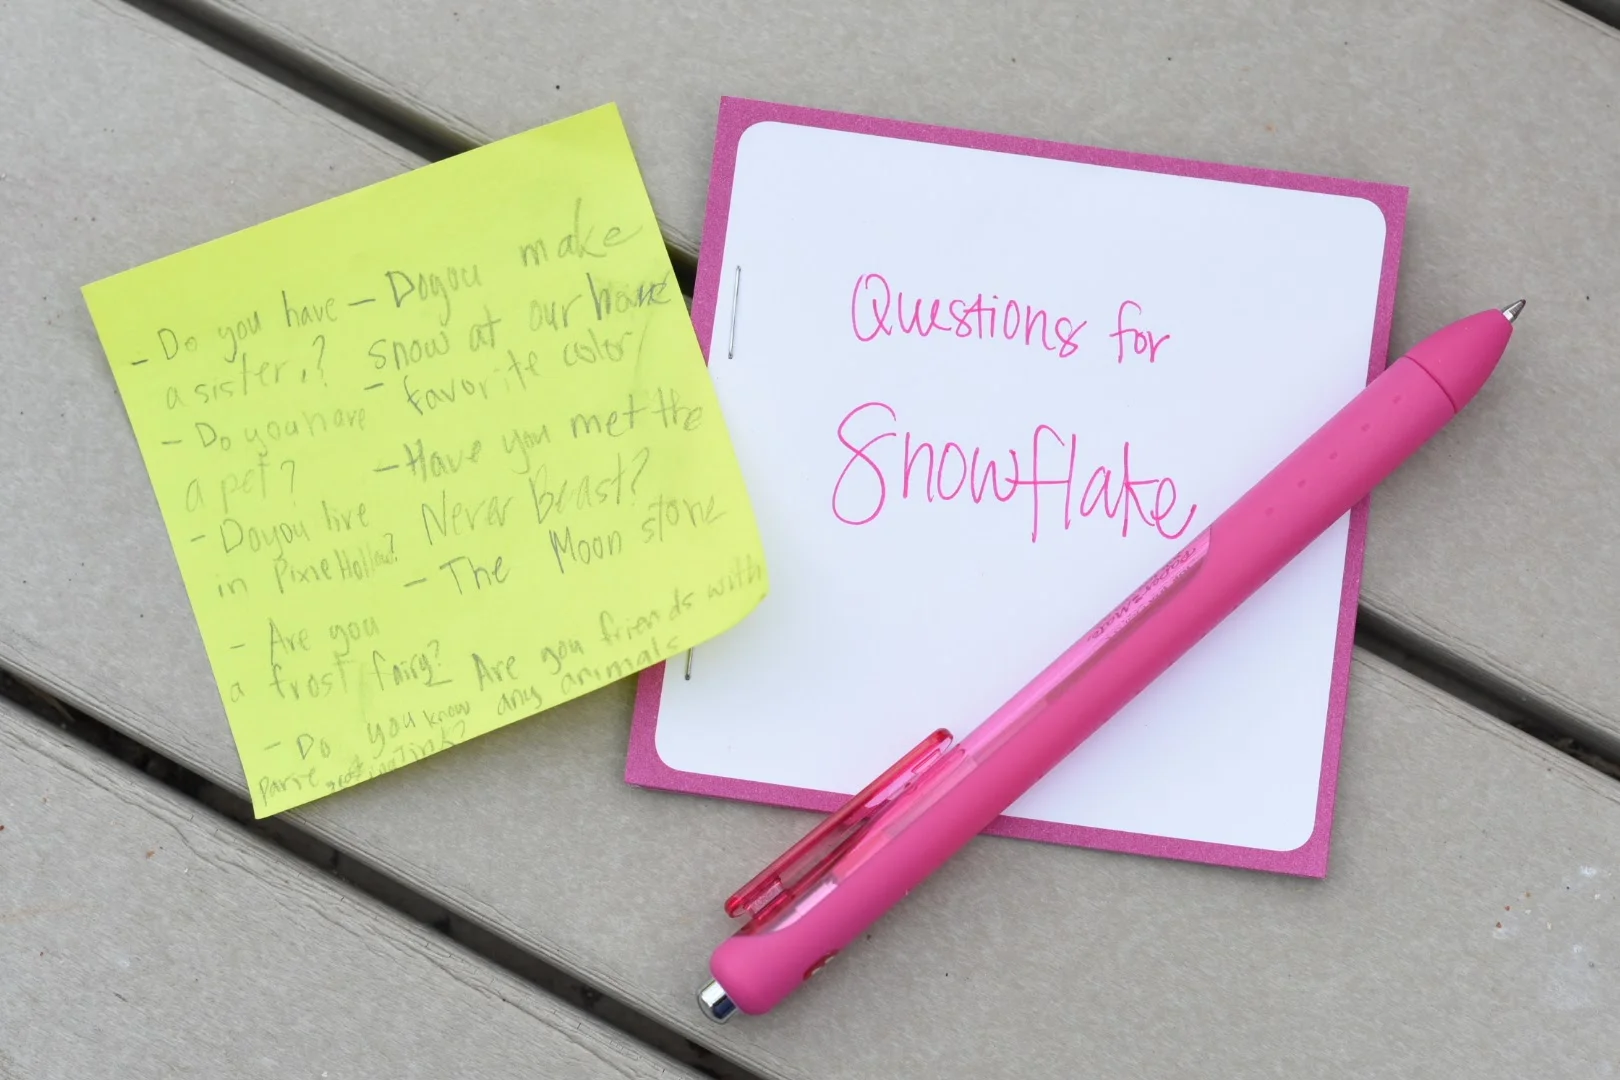 - Do you have
a sister,?
- Do you have
a pet?
- Do you live
in Pixie Hollow?
- Are you
a frost fairy?
- Do you know
- Do you make
snow at our
- favorite color
- Have you met the
Never Beast?
- The Moon stone
Are you friends with
any animals
Questions for
Snowflake
PaperMate